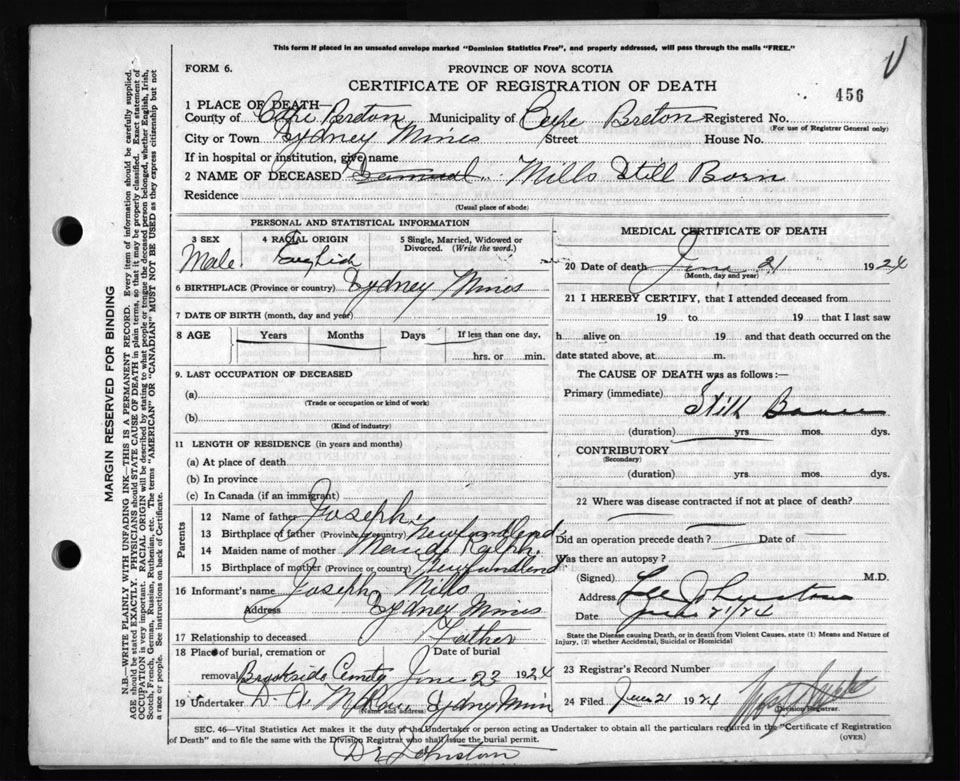 This form if placed in an unsealed envelope marked "Dominion Statistics Free", and properly addressed, will pass through the mails "FREE."
FORM 6.
PROVINCE OF NOVA SCOTIA
CERTIFICATE OF REGISTRATION OF DEATH
456
1 PLACE OF DEATH
County of Cape Breton Municipality of Cape Breton Registered No.
(For use of Registrar General only)
City or Town Sydney Mines Street House No.
If in hospital or institution, give name
2 NAME OF DECEASED Mills Still Born
Residence
(Usual place of abode)
PERSONAL AND STATISTICAL INFORMATION
3 SEX 4 RACIAL ORIGIN 5 Single, Married, Widowed or Divorced. (Write the word.)
Male. English
6 BIRTHPLACE (Province or country) Sydney Mines
7 DATE OF BIRTH (month, day and year)
8 AGE Years Months Days If less than one day,
hrs. or min.
9. LAST OCCUPATION OF DECEASED
(a)
(Trade or occupation or kind of work)
(b)
(Kind of industry)
11 LENGTH OF RESIDENCE (in years and months)
(a) At place of death
(b) In province
(c) In Canada (if an immigrant)
Parents
12 Name of father Joseph.
13 Birthplace of father (Province or country) Newfoundland
14 Maiden name of mother Ralph.
15 Birthplace of mother (Province or country) Newfoundland
16 Informant's name Joseph Mills
Address Sydney Mines
17 Relationship to deceased Father
18 Place of burial, cremation or removal Date of burial
Brookside Cemty June 23 1924
19 Undertaker D. A. Sydney Min
(Name and address)
MEDICAL CERTIFICATE OF DEATH
20 Date of death June 21 1924
(Month, day and year)
21 I HEREBY CERTIFY, that I attended deceased from
19 to 19 that I last saw
h alive on 19 and that death occurred on the
date stated above, at m.
The CAUSE OF DEATH was as follows:—
Primary (immediate) Still Born
(duration) yrs mos. dys.
CONTRIBUTORY
(Secondary)
(duration) yrs. mos. dys.
22 Where was disease contracted if not at place of death?
Did an operation precede death? Date of
Was there an autopsy?
(Signed) M.D.
Address
Date June 21/24
State the Disease causing Death, or in death from Violent Causes, state (1) Means and Nature of
Injury, (2) whether Accidental, Suicidal or Homicidal
23 Registrar's Record Number
24 Filed June 21 1924
Division Registrar.
SEC. 46—Vital Statistics Act makes it the duty of the Undertaker or person acting as Undertaker to obtain all the particulars required in the "Certificate of Registration
of Death" and to file the same with the Division Registrar who shall issue the burial permit.
(OVER)
Dr Johnston
MARGIN RESERVED FOR BINDING
N.B.—WRITE PLAINLY WITH UNFADING INK—THIS IS A PERMANENT RECORD. Every item of information should be carefully supplied.
AGE should be stated EXACTLY. PHYSICIANS should STATE CAUSE OF DEATH in plain terms, so that it may be properly classified. Exact statement of
OCCUPATION is very important. RACIAL ORIGIN will be described by stating to what people or tongue the deceased person belonged, whether English, Irish,
Scotch, French, German, Russian, Ruthenian, etc. The terms "AMERICAN" OR "CANADIAN" MUST NOT BE USED as they express citizenship but not
a race or people. See instructions on back of Certificate.